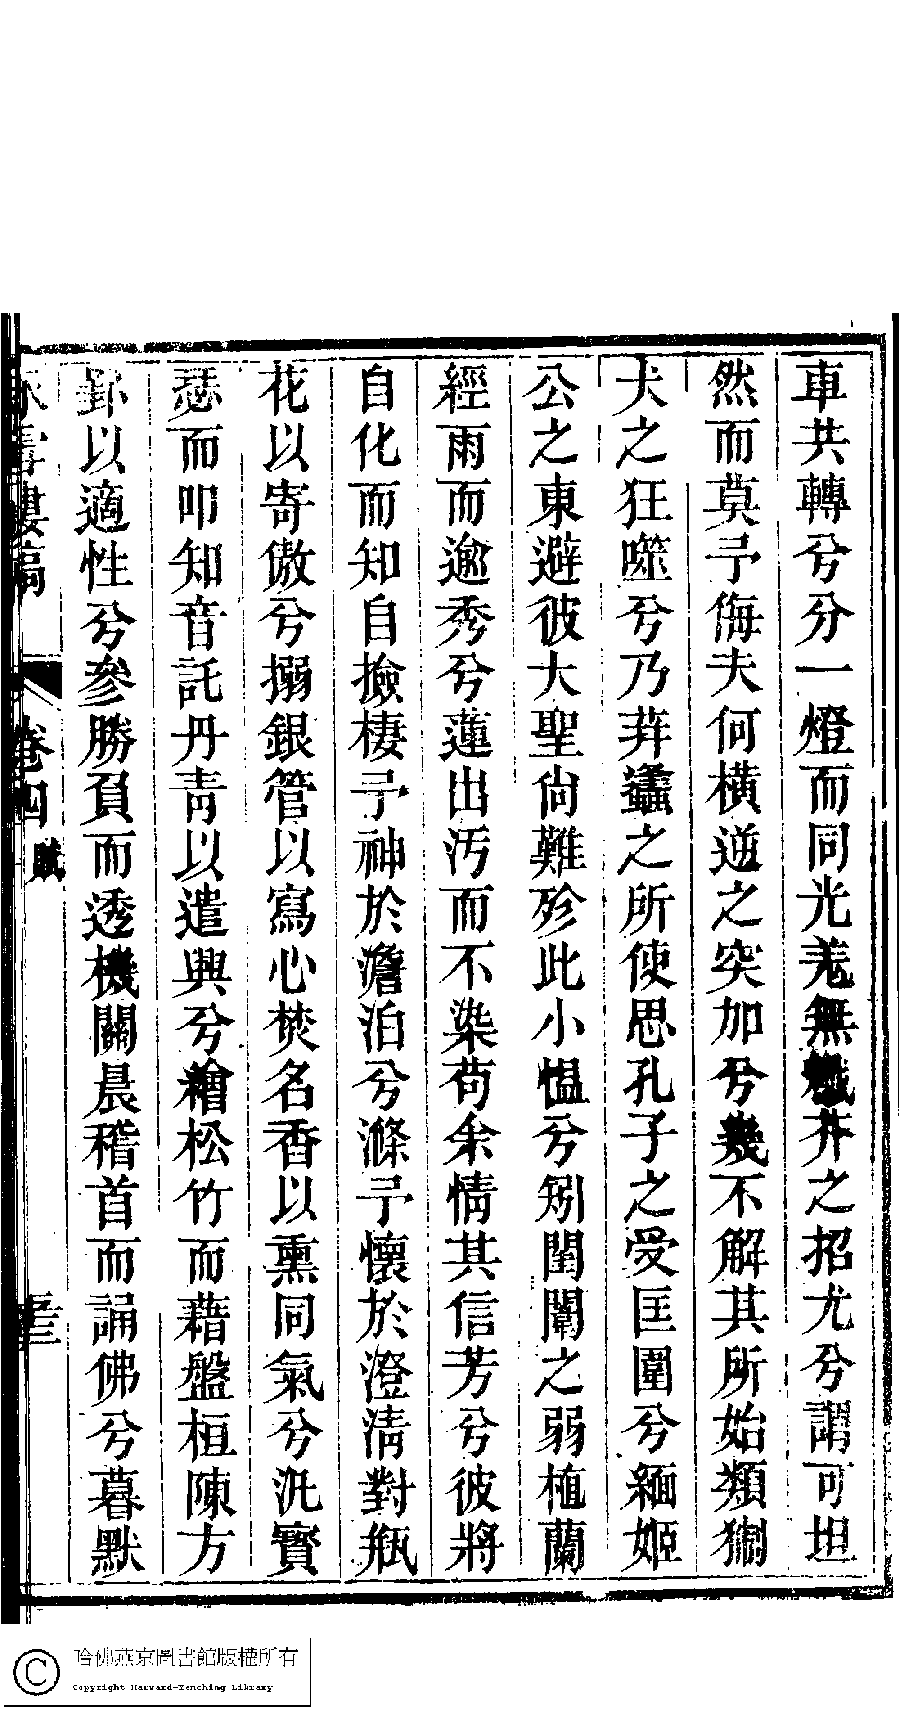 車共轉兮分一燈而同光羗無纖芥之招尤兮謂可坦
然而莫予侮夫何橫逆之突加兮羙不解其所始類猘
犬之狂噬兮乃荓蠭之所使思孔子之受匡圍兮緬姬
公之東避彼大聖尙難殄此小慍兮矧閨闈之弱植蘭
經雨而逾秀兮蓮出汚而不染苟余情其信芳兮彼將
自化而知自撿棲予神於澹泊兮滌予懷於澄淸對瓶
花以寄傲兮搦銀管以寫心焚名香以熏同氣兮汎寳
瑟而叩知音託丹靑以遣興兮繪松竹而藉盤桓陳方
罫以適性兮參勝負而透機關晨稽首而誦佛兮暮默
雪樓稿
卷四
賦
Copyright Harvard-Yenching Library
哈佛燕京圖書館版權所有